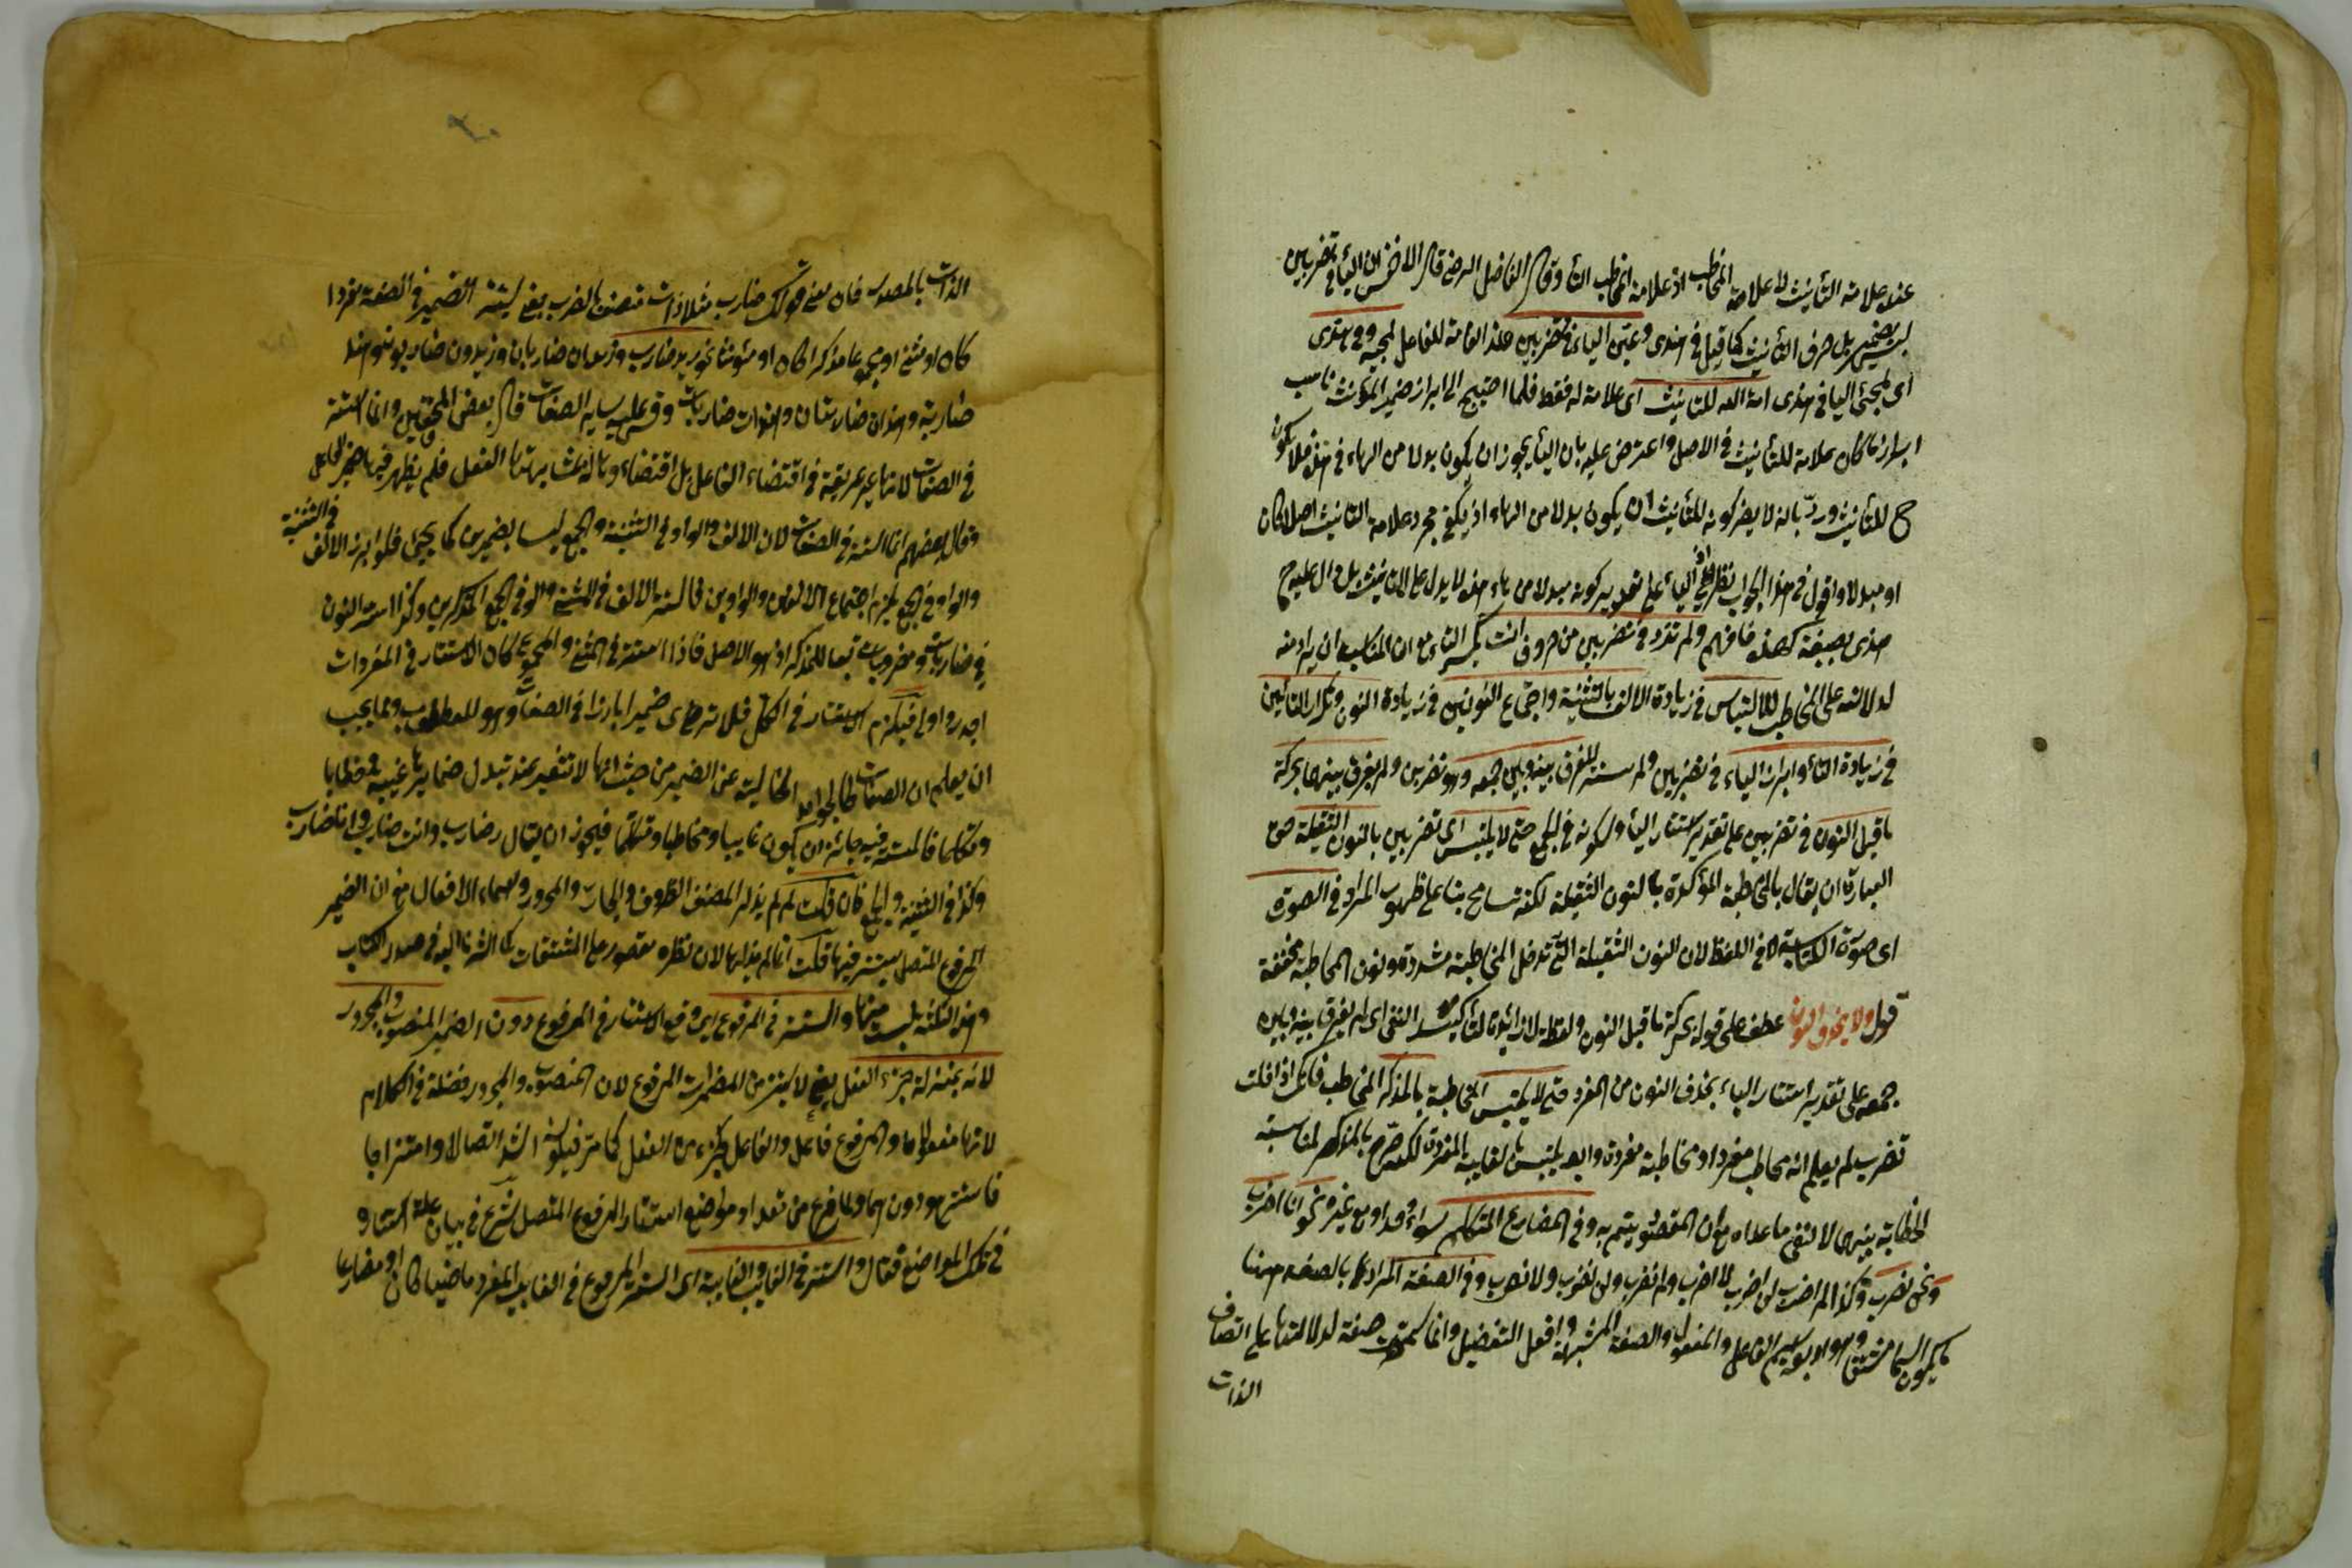 عنده علامة التأنيث لا علامة المخاطب اذ علامة المخاطب التأ وقال الفاضل الرضي قال الاخفش ان اليأ في تضربين
ليس بضمير بل حرف التأنيث كما قيل في هذي وعين الياء في تضربين هذا القامة للفاعل لمجيئه في هذي
اى لمجئ اليا في هذى امة الله للتانيث اى علامة له فقط فلما احتيج الى ابراز ضمير المؤنث ناسب
ابراز ما كان علامة للتأنيث في الاصل واعترض عليه بان اليأ يجوز ان يكون بدلا من الهاء في هذه فلا يكون
ح للتأنيث وردّ بانه لا يضر كونه للتأنيث ان يكون بدلا من الهاء اذ يكفي مجرد علامة التانيث اصلا كان
او مبدلا واقول في هذا الجواب نظر اذ اليأ على تقدير كونه مبدلا من هاء هذه لا يدل على التانيث بل دال عليه ح
هذى بصيغة كهذه فافهم ولم تزد في تضربين من حروف انت بكسر التاء مع ان المناسب ان يزاد منه
لدلالته على المخاطب للالتباس في زيادة الالف بالتثنية واجتماع النونين في زيادة النون وتكرار التائين
في زيادة التأ وابراز الياء في تضربين ولم يستتر للفرق بينه وبين جمعه وهو تضربن ولم يفرق بينهما بحركة
ما قبل النون في تضربين على تقدير استتار اليأ وسكونه في الجمع حتى لا يلتبس اى تضربين بالنون الثقيلة حق
العبارة ان يقال بالمخاطبة المؤكدة بالنون الثقيلة لكنه تسامح بنا على ظهور المراد في الصورة
اى صورة الكتابة لا في اللفظ لان النون الثقيلة التي تدخل المخاطبة مشددة ونون المخاطبة مخففة
قوله ولا بحذف النون عطف على قوله بحركة ما قبل النون ولفظة لا زائدة لتأكيد النفى اى لم يفرق بينه وبين
جمعه على تقدير استتار الياء بحذف النون من المفرد حتى لا يلتبس المخاطبة بالمذكر المخاطب فانك اذا قلت
تضرب لم يعلم انه مخاطب مفرد او مخاطبة مفردة وايضا يلتبس بالغايبة المفردة لكنه صرح بالمذكر لمناسبة
الخطابة بينهما لا لنفى ما عداه مع ان المقصود يتم به وفي المضارع المتكلم سواء وحده او مع غيره نحو انا اضرب
ونحن نضرب وكذا لم اضرب لن اضرب لا اضرب ولم نضرب ولن نضرب ولا نضرب وفي الصفة المراد بالصفة هنا
ما يكون اسما مشتقا وهو اربعة اسم الفاعل والمفعول والصفة المشبهة وافعل التفضيل وانما سميت صفة لدلالتها على اتصاف
الذات
الذات بالمصدر فان معنى قولك ضارب مثلا ذات متصف بالضرب يعنى يستتر الضمير في الصفة مفردا
كان او مثنى او مجموعا مذكرا كان او مؤنثا نحو زيد ضارب وزيدان ضاربان وزيدون ضاربون وهند
ضاربة وهندان ضاربتان وهندات ضاربات وقس عليه ساير الصفات قال بعض المحققين وانما استتر
في الصفات لانها غير عريقة في اقتضاء الفاعل بل اقتضاءها له لمشابهتها الفعل فلم يظهر فيها ضمير الفاعل
وقال بعضهم انما استتر في الصفات لان الالف والواو في التثنية والجمع ليسا بضميرين كما يجئ فلو ابرز الالف في التثنية
والواو في الجمع يلزم اجتماع الالفين والواوين فاستتر الالف في المثنى والواو في الجمع المذكرين وكذا استتر النون
في ضاربات ومضروبات تبعا للمذكر اذ هو الاصل فاذا استتر في المثنى والمجموع كان الاستتار في المفردات
اجدر واولى فيلزم الاستتار في الكل فلا ترى ضميرا بارزا في الصفات وهو المطلوب ومما يجب
ان يعلم ان الصفات كالجوامد الخالية عن الضمير من حيث انها لا تتغير عند تبدل ضمايرها غيبة وخطابا
وتكلما فالمستتر فيه جائز ان يكون غايبا ومخاطبا ومتكلما فيجوز ان يقال زيد ضارب وانت ضارب وانا ضارب
وكذا في التثنية والجمع فان قلت لم لم يذكر المصنف الظروف والجار والمجرور واسماء الافعال مع ان الضمير
المرفوع المتصل يستتر فيها قلت انما لم يذكرها لان نظره مقصور على المشتقات كما اشرنا اليه في صدر الكتاب
وهذه الثلثة ليست منها واستتر في المرفوع اى وقع الاستتار في المرفوع دون الضمير المنصوب والمجرور
لانه بمنزلة جزء الفعل يعنى لا يستتر من المضمرات الا المرفوع لان المنصوب والمجرور فضلة في الكلام
لانهما مفعولا وما والمرفوع فاعل والفاعل كجزء من الفعل كما مر فيكون اشد اتصالا وامتزاجا
فاستتر هو دونهما ولما فرغ من تعداد مواضع استتار المرفوع المتصل شرع في بيان علة استتاره
في تلك المواضع فقال واستتر في الغايب والغايبة اى استتر المرفوع في الغايب المفرد ماضيا كان او مضارعا